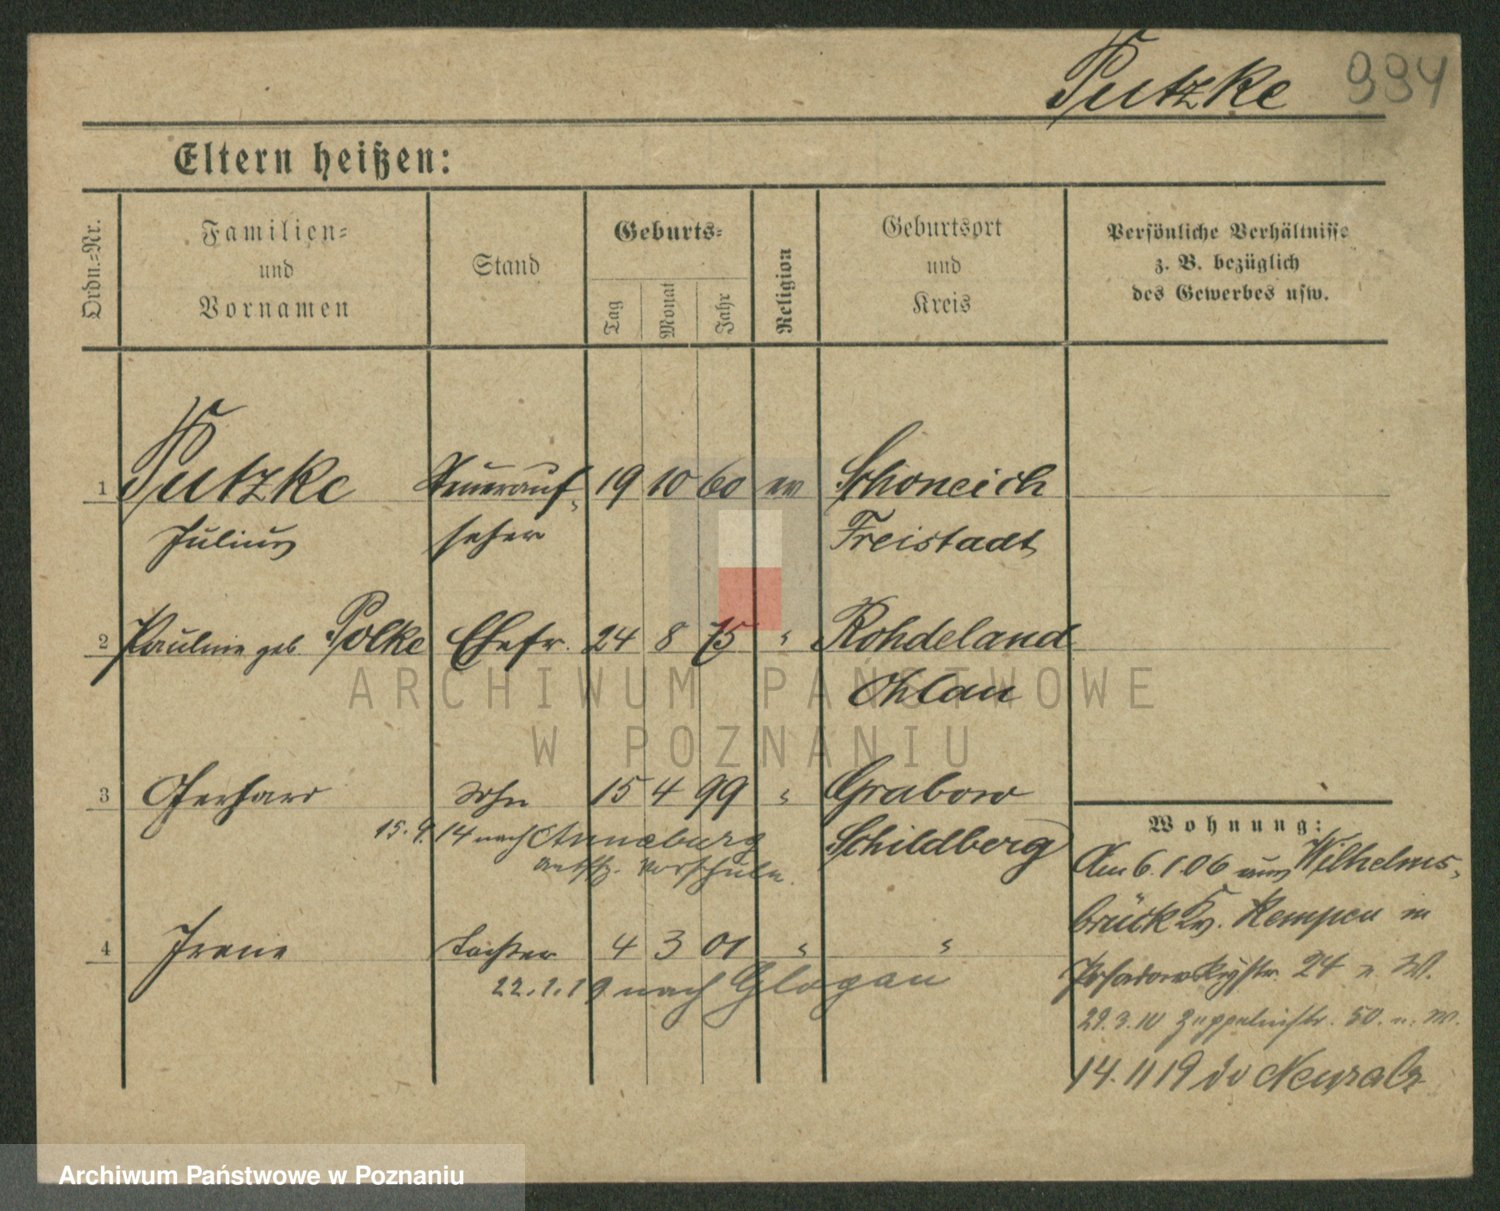 Putzke 994
Eltern heißen:
Ordn.-Nr.
Familien-
und
Vornamen
Stand
Geburts-
Tag
Monat
Jahr
Religion
Geburtsort
und
Kreis
Persönliche Verhältnisse
z. B. bezüglich
des Gewerbes usw.
1 Putzke Steuerauf- 19 10 60 ev Schoneich
Julius seher Freistadt
2 Pauline geb. Polke Ehefr. 24 8 75 " Rohdeland
Ohlau
3 Gerhard Sohn 15 4 99 " Grabow
15. 4. 14 nach Annaburg Schildberg
Vorschule.
4 Irene Tochter 4 3 01 " "
22. 1. 19 nach Glogau
Wohnung:
Am 6. 1. 06 aus Wilhelms-
brück Kr. Kempen in
Posadowskystr. 24 n. W.
29. 3. 10 Zeppelinstr. 50. n. W.
14. 11 19 Neusalz
ARCHIWUM PAŃSTWOWE
W POZNANIU
Archiwum Państwowe w Poznaniu